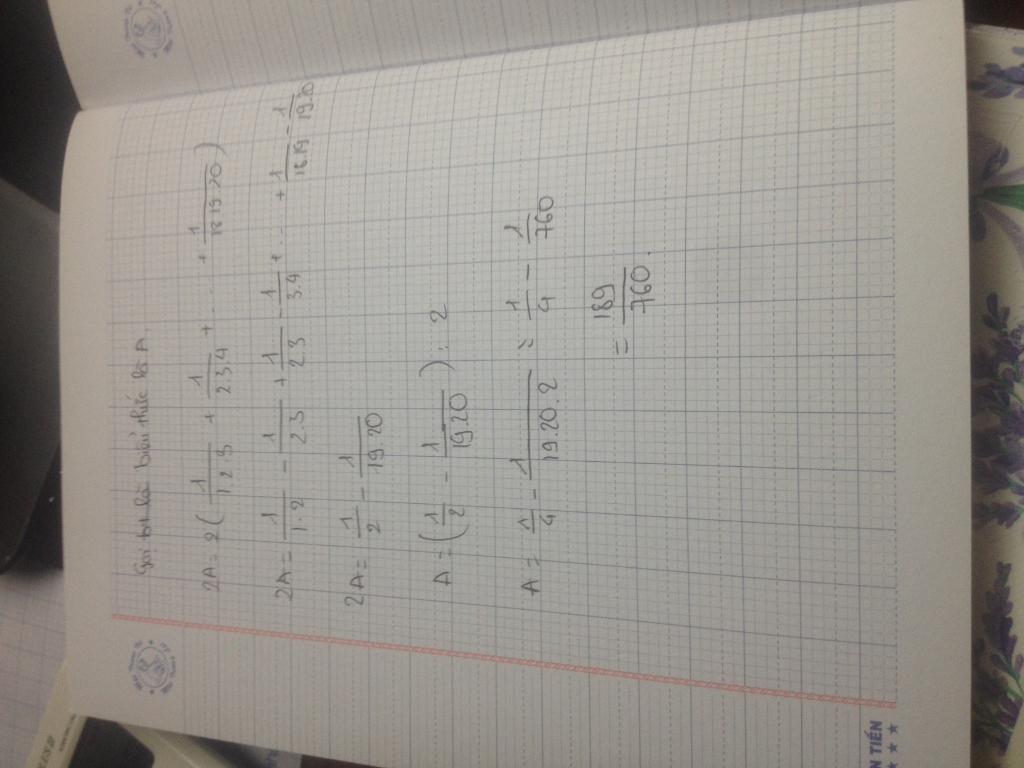 Gọi bt là biểu thức là A.
2A = 2 ( 1/1 2 3 + 1/2.3 4 + ... + 1/18 19.20 )
2A = 1/1.2 - 1/2.3 + 1/2 3 - 1/3.4 + ... + 1/18 19 - 1/19.20
2A = 1/2 - 1/19.20
A = ( 1/2 - 1/19.20 ) : 2
A = 1/4 - 1/19.20.2 = 1/4 - 1/760
= 189/760.
N TIẾN